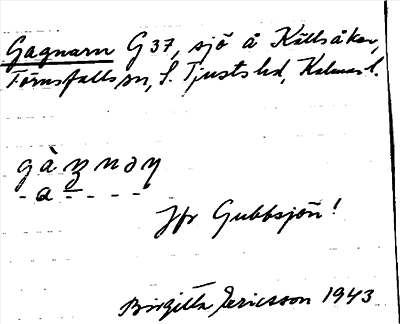 Gagnarn G 37, sjö å Källsåker,
Törnsfalls sn, S. Tjusts hd, Kalmar l.
gàꞬnəɳ
- a - - - -
Jfr Gubbsjön!
Birgitta Ericsson 1943